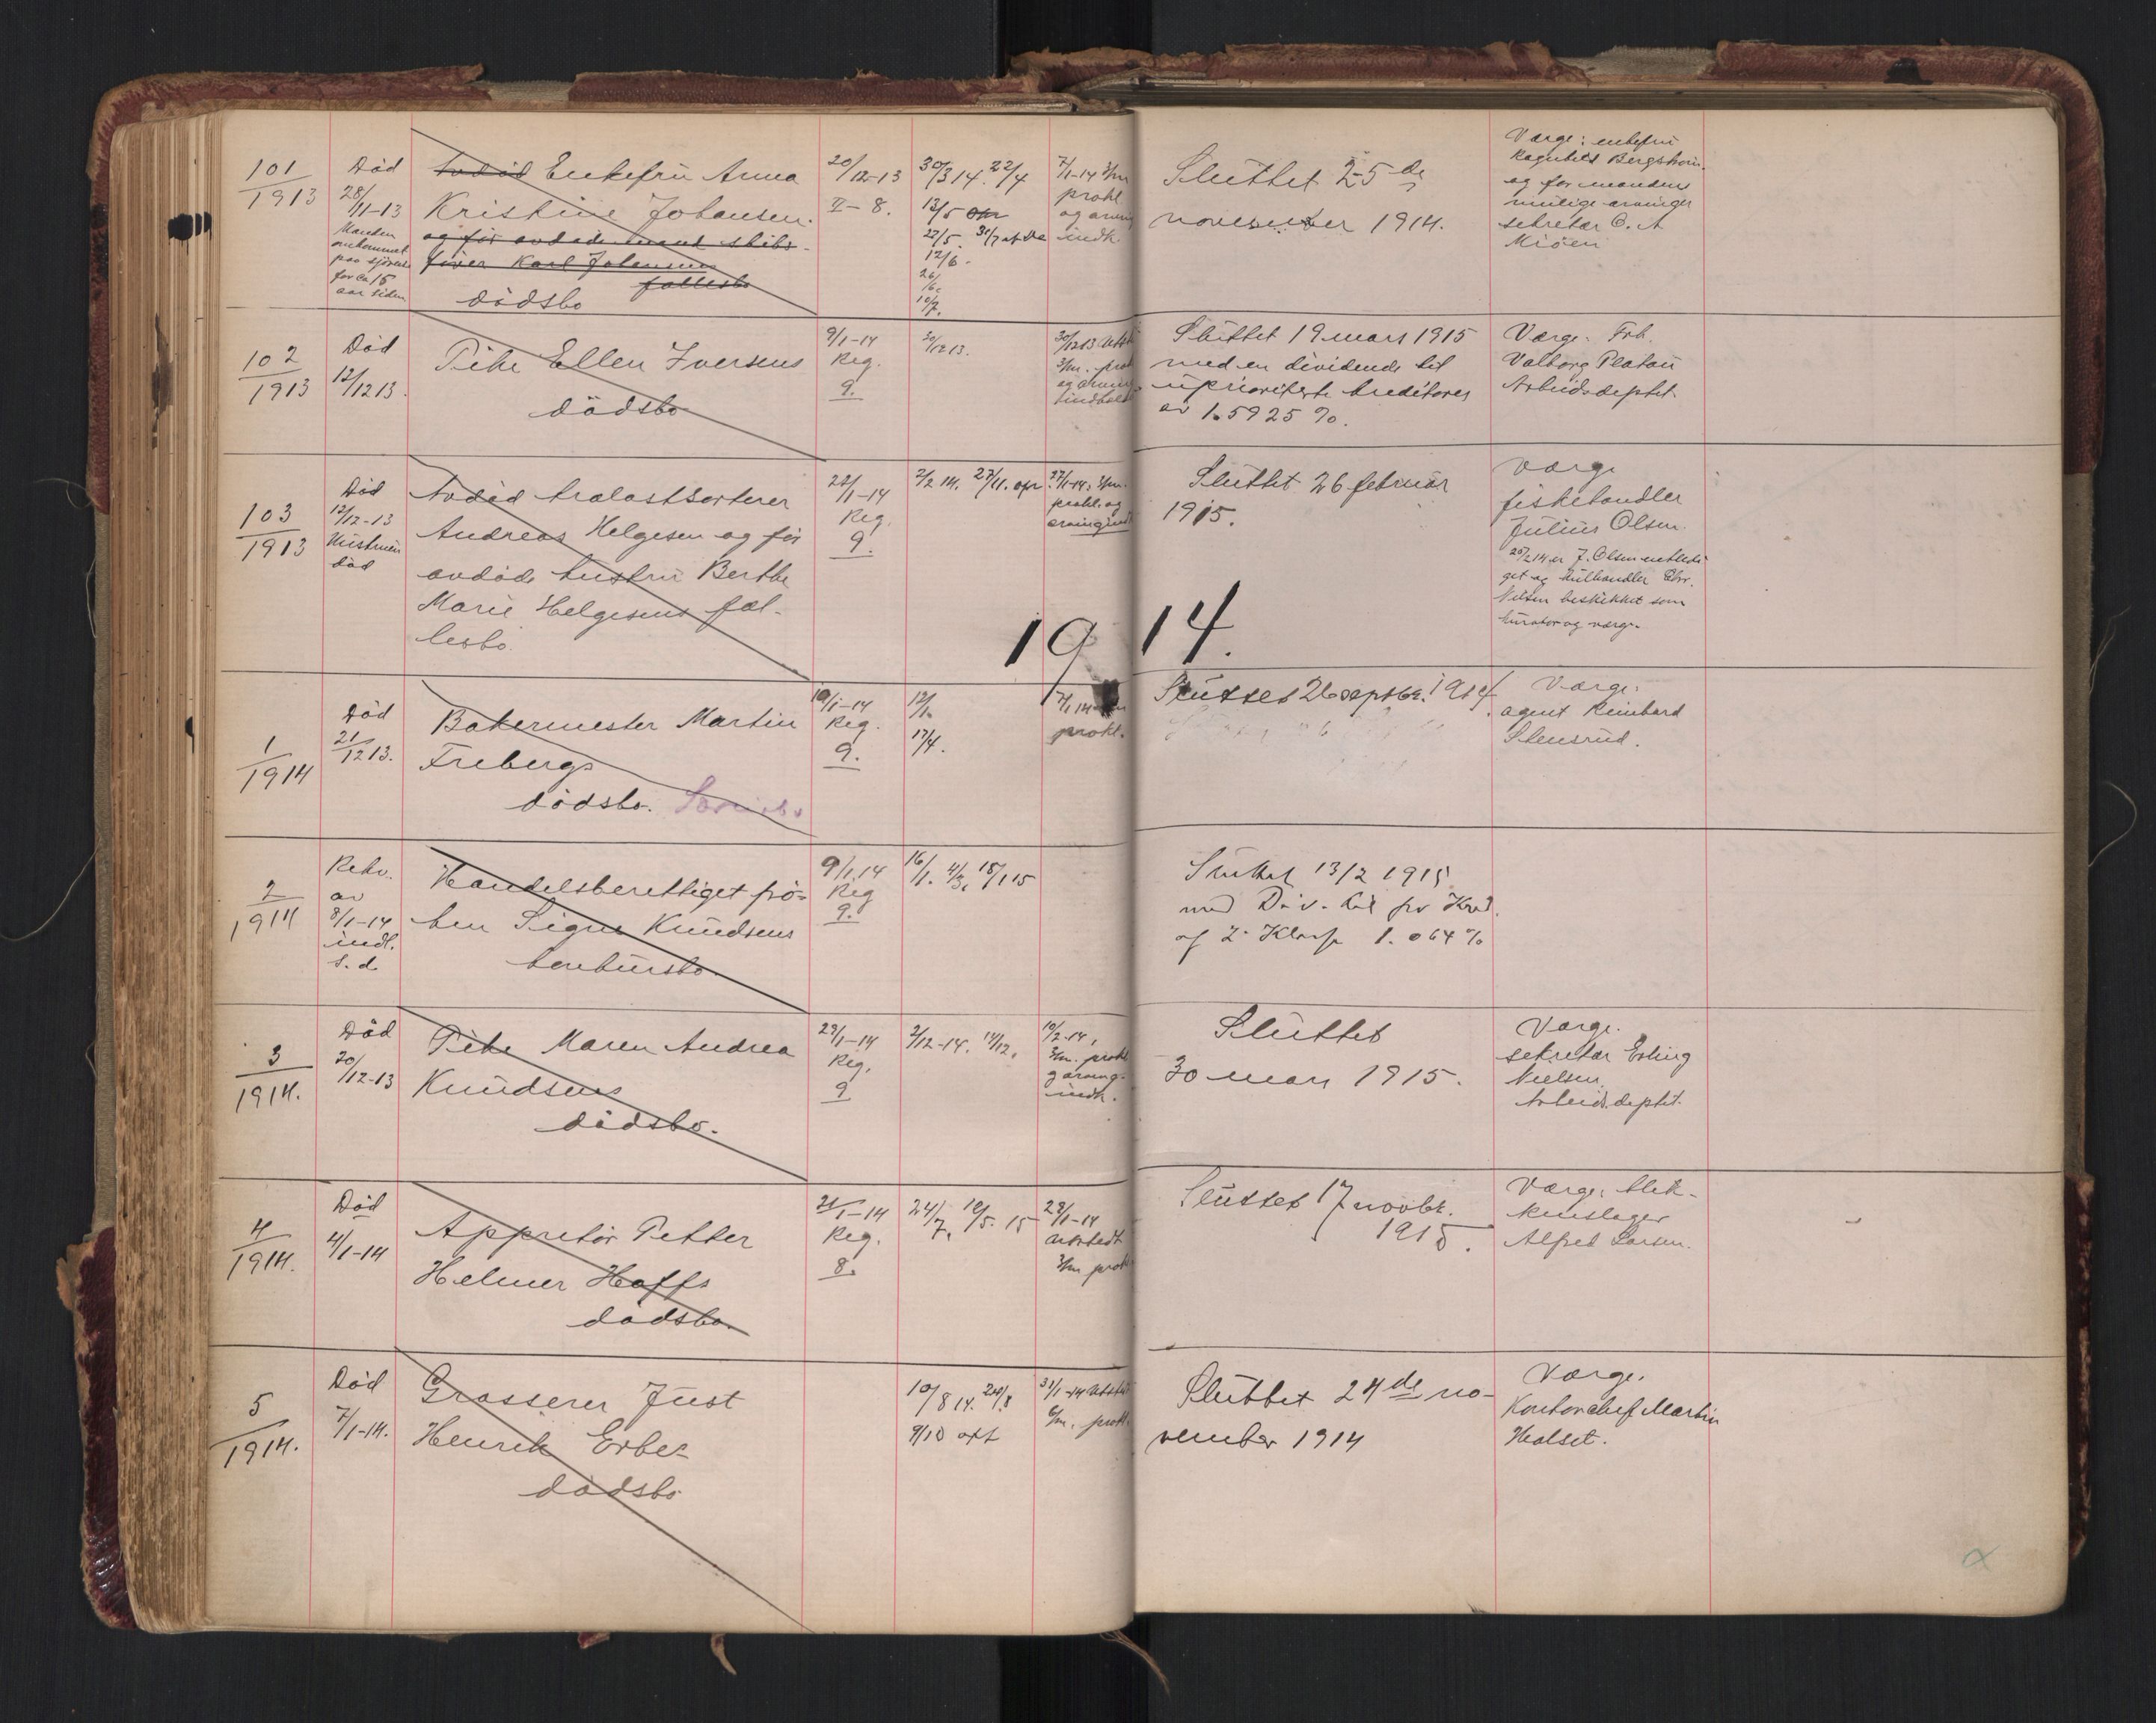 101
1913
Död
28/11-13
Manden
omkommet
paa sjöen
for ca 15
aar siden
Avdöd Enkefru Anna
Kristine Johansen.
og för avdöde mand skibs-
förer Karl Johansens
fællesbo
dödsbo
20/12-13
II - 8.
30/3 14. 22/4
13/5
27/5.
12/6.
26/6.
10/7.
7/1-14 3/m
prokl.
og arving
indk.
Sluttet 25 de
november 1914.
Værge: enkefru
Ragnhild Bergstrøm
og for mandens
mulige arvinger
sekretær C. A.
Miöen
102
1913
Död
12/12 13.
Pike Ellen Iversens
dödsbo
9/1-14
Reg.
9.
30/12 13.
30/12 13
3/m. prokl
og arving
Sluttet 19 mars 1915
med en dividende til
uprioriterte kreditorer
av 1.5925 %.
Værge: Frk.
Valborg Platou
Arbeidsdeptet.
103
1913
Död
12/12-13
Hustruen
död
Avdöd trælastsorterer
Andreas Helgesen og för
avdöde hustru Berthe
Marie Helgesens fæl-
lesbo.
22/1-14
Reg.
9.
2/2 14. 27/11.
27/1-14. 3/m.
prokl. og
arving ind
Sluttet 26 februar
1915.
Værge
fiskehandler
Julius Olsen.
25/2 14 er J. Olsen entledi
get og kulhandler Chr.
Nilsen beskikket som
kurator og værge.
1914.
1
1914
Död
21/12 13.
Bakermester Martin
Frebergs
dödsbo.
10/1-14
Reg.
9.
12/1.
17/4.
7/1 14
prokl.
Sluttet 26 septbr. 1914.
Værge:
agent Reinhard
Stensrud.
2
1914
Rekv.
av
8/1-14
indl.
s. d.
Handelsberettiget frö-
ken Signe Knudsens
konkursbo.
9/1 14
Reg
9.
16/1. 4/3. 18/1 15
Sluttet 13/2 1915
med Div. til
af 2. Klasse 1.064 %
3
1914.
Död
20/12-13
Pike Maren Andrea
Knudsens
dödsbo.
23/1-14
Reg.
9
2/12-14. 14/12.
10/2-14,
3/m. prokl
g arving-
indk.
Sluttet
30 mars 1915.
Værge.
sekretær Erling
Nielsen.
Arbeids.deptet.
4
1914.
Död
4/1-14
Appretör Petter
Helmer Hoffs
dödsbo.
21/1-14
Reg.
8.
24/7. 12/5. 15
28/1-14
utstedt
3/m prokl
Sluttet 17 novbr.
1915.
Værge: blik-
kenslager
Alfred Larsen.
5
1914.
Död
7/1-14.
Grosserer Just
Henrik Erbes
dödsbo
10/8 14. 24/8
9/10
31/1-14 utsted
6/m. prokl.
Sluttet 24 de no-
vember 1914
Værge.
Kontorchef Martin
Halset.